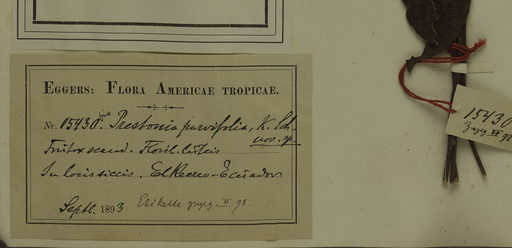 EGGERS: FLORA AMERICAE TROPICAE.
Nr. 15430 bis Prestonia parvifolia, K. Sch.
nov. sp.
Frutex scand. Floril. luteis
In locis siccis. El Recreo - Ecuador
Septl. 1893 Etikette zugeg. II. 98.
15430
zugeg. II 98